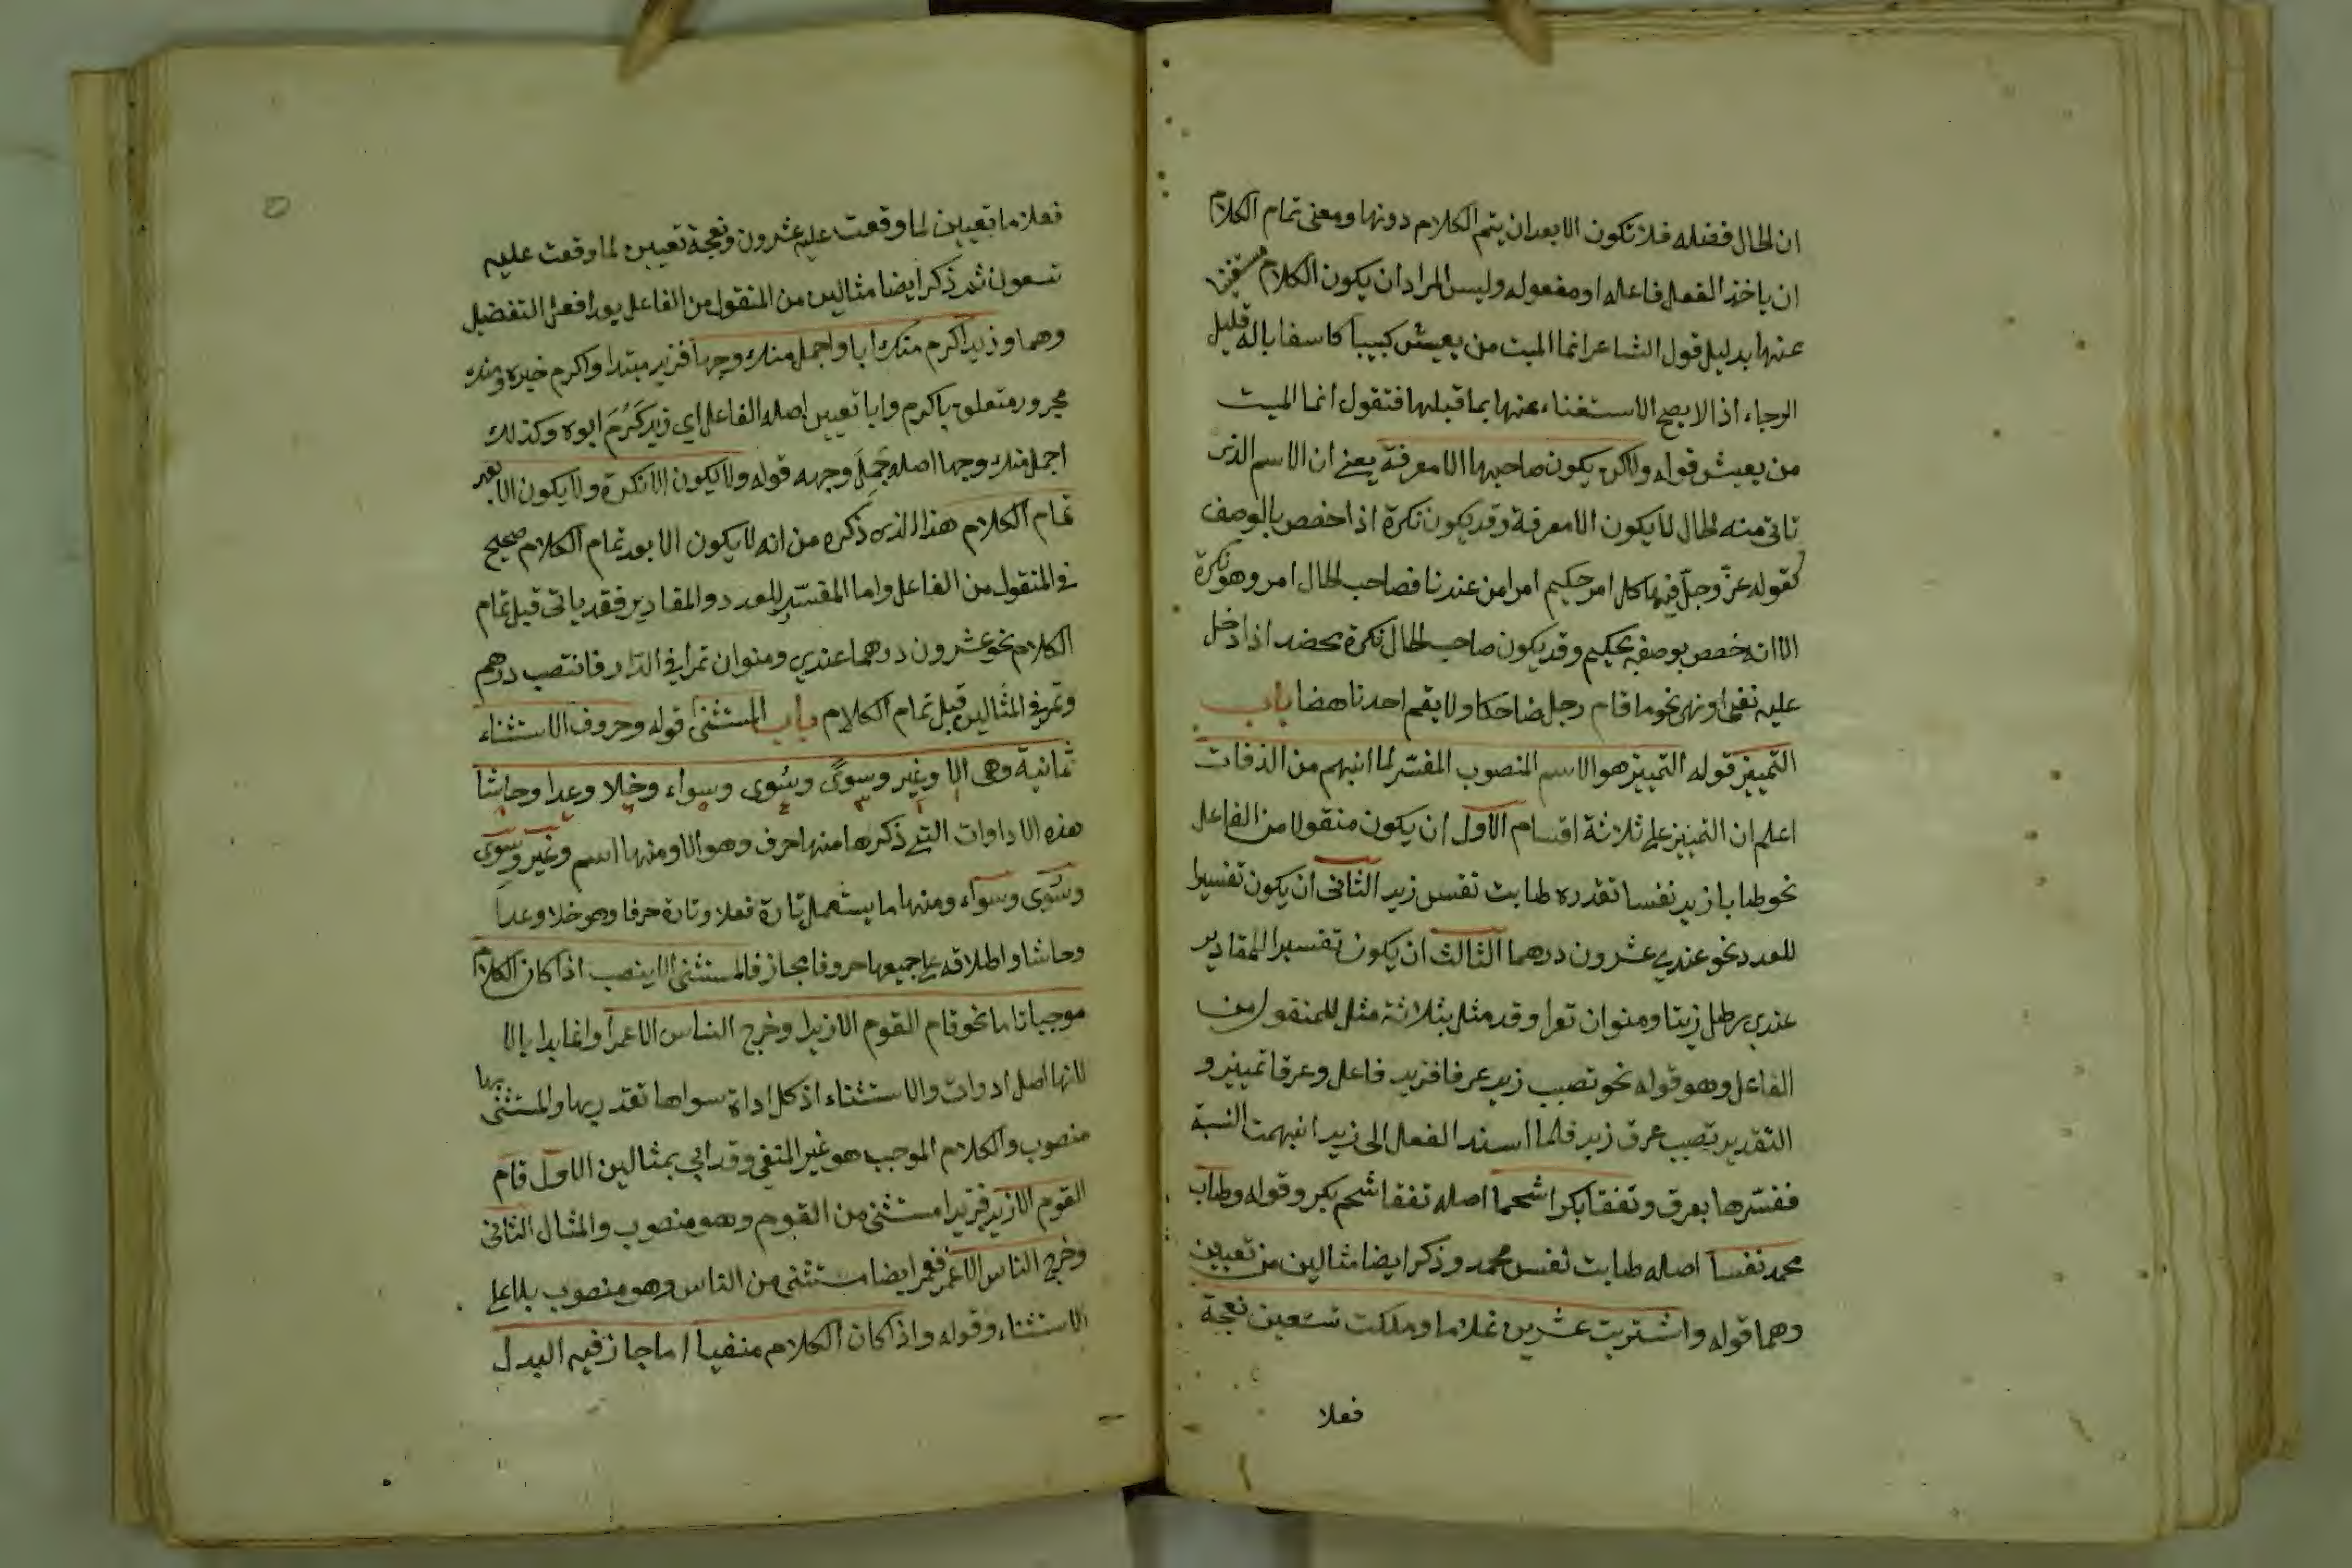 ان الحال فضله فلا تكون الا بعد ان يتم الكلام دونها ومعنى تمام الكلام
ان ياخذ الفعل فاعله او مفعوله وليس المراد ان يكون الكلام مستغنيا
عنها بدليل قول الشاعر انما الميت من يعيش كييبا كاسفا باله قليل
الرجاء اذ لا يصح الاستغناء عنها بما قبلها فتقول انما الميت
من يعيش قوله ولا يكون صاحبها الا معرفة يعني ان الاسم الذي
تاتي منه الحال لا يكون الا معرفة وقد يكون نكرة اذا خصص بالوصف
كقوله عز وجل فيها كل امر حكيم امرا من عندنا فصاحب الحال امر وهو نكرة
الا انه خصص بوصفه بحكيم وقد يكون صاحب الحال نكرة محضه اذا دخل
عليه نفي او نهي نحو ما قام رجل ضاحكا ولا يقم احد ناهضا باب
التمييز قوله التمييز هو الاسم المنصوب المفسّر لما انبهم من الذفات
اعلم ان التمييز على ثلاثة اقسام الاول ان يكون منقولا من الفاعل
نحو طاب زيد نفسا تقدره طابت نفس زيد الثاني ان يكون تفسيرا
للعدد نحو عندي عشرون درهما الثالث ان يكون تفسيرا للمقادير
عندي رطل زيتا ومنوان تمرا وقد مثل بثلاثة مثل للمنقول من
الفاعل وهو قوله نحو تصبب زيد عرقا فزيد فاعل وعرقا تمييز و
التقدير تصبب عرق زيد فلما اسند الفعل الى زيد انبهمت النسبة
ففسّرها بعرق وتفقا بكرا شحما اصله تفقا شحم بكر وقوله وطاب
محمد نفسا اصله طابت نفس محمد وذكر ايضا مثالين من تعيين
وهما قوله واشتريت عشرين غلاما وملكت تسعين نعجة
فعلا
فعلاما تعيين لما وقعت عليه عشرون ونعجة تعيين لما وقعت عليه
تسعون ثم ذكر ايضا مثالين من المنقول من الفاعل بعد افعل التفضيل
وهما وزيد اكرم منك ابا واجمل منك وجها فزيد مبتدا واكرم خبره ومنك
مجرور متعلق باكرم وابا تعيين اصله الفاعل اي زيد كَرُمَ ابوه وكذلك
اجمل منك وجها اصله جمل وجهه قوله ولا يكون الا نكرة ولا يكون الا بعد
تمام الكلام هذا الذي ذكره من انه لا يكون الا بعد تمام الكلام صحيح
في المنقول من الفاعل واما المفسّر للعدد والمقادير فقد ياتي قبل تمام
الكلام نحو عشرون درهما عندي ومنوان تمرا في الدار فانتصب درهم
وتمر في المثالين قبل تمام الكلام باب المستثنى قوله وحروف الاستثناء
ثمانية وهى الا وغير وسوى وسُوى وسواء وخلا وعدا وحاشا
هذه الاداوات التي ذكرها منها حرف وهو الا ومنها اسم وغير وسوى
وسُوى وسواء ومنها ما يستعمل تارة فعلا وتارة حرفا وهو خلا وعدا
وحاشا واطلاقه على جميعها حروفا مجاز فالمستثنى الا ينصب اذا كان الكلام
موجبا تاما نحو قام القوم الا زيدا وخرج الناس الا عمرا وانما بدا بالا
لانها اصل ادوات والاستثناء اذ كل اداة سواها تقدر بها والمستثنى بها
منصوب والكلام الموجب هو غير المنفي وقد اتى بمثالين الاول قام
القوم الا زيد فزيدا مستثنى من القوم وهو منصوب والمثال الثاني
وخرج الناس الا عمر فعمر ايضا مستثنى من الناس وهو منصوب بلا على
الاستثناء وقوله واذا كان الكلام منفيا اما جاز فيه البدل